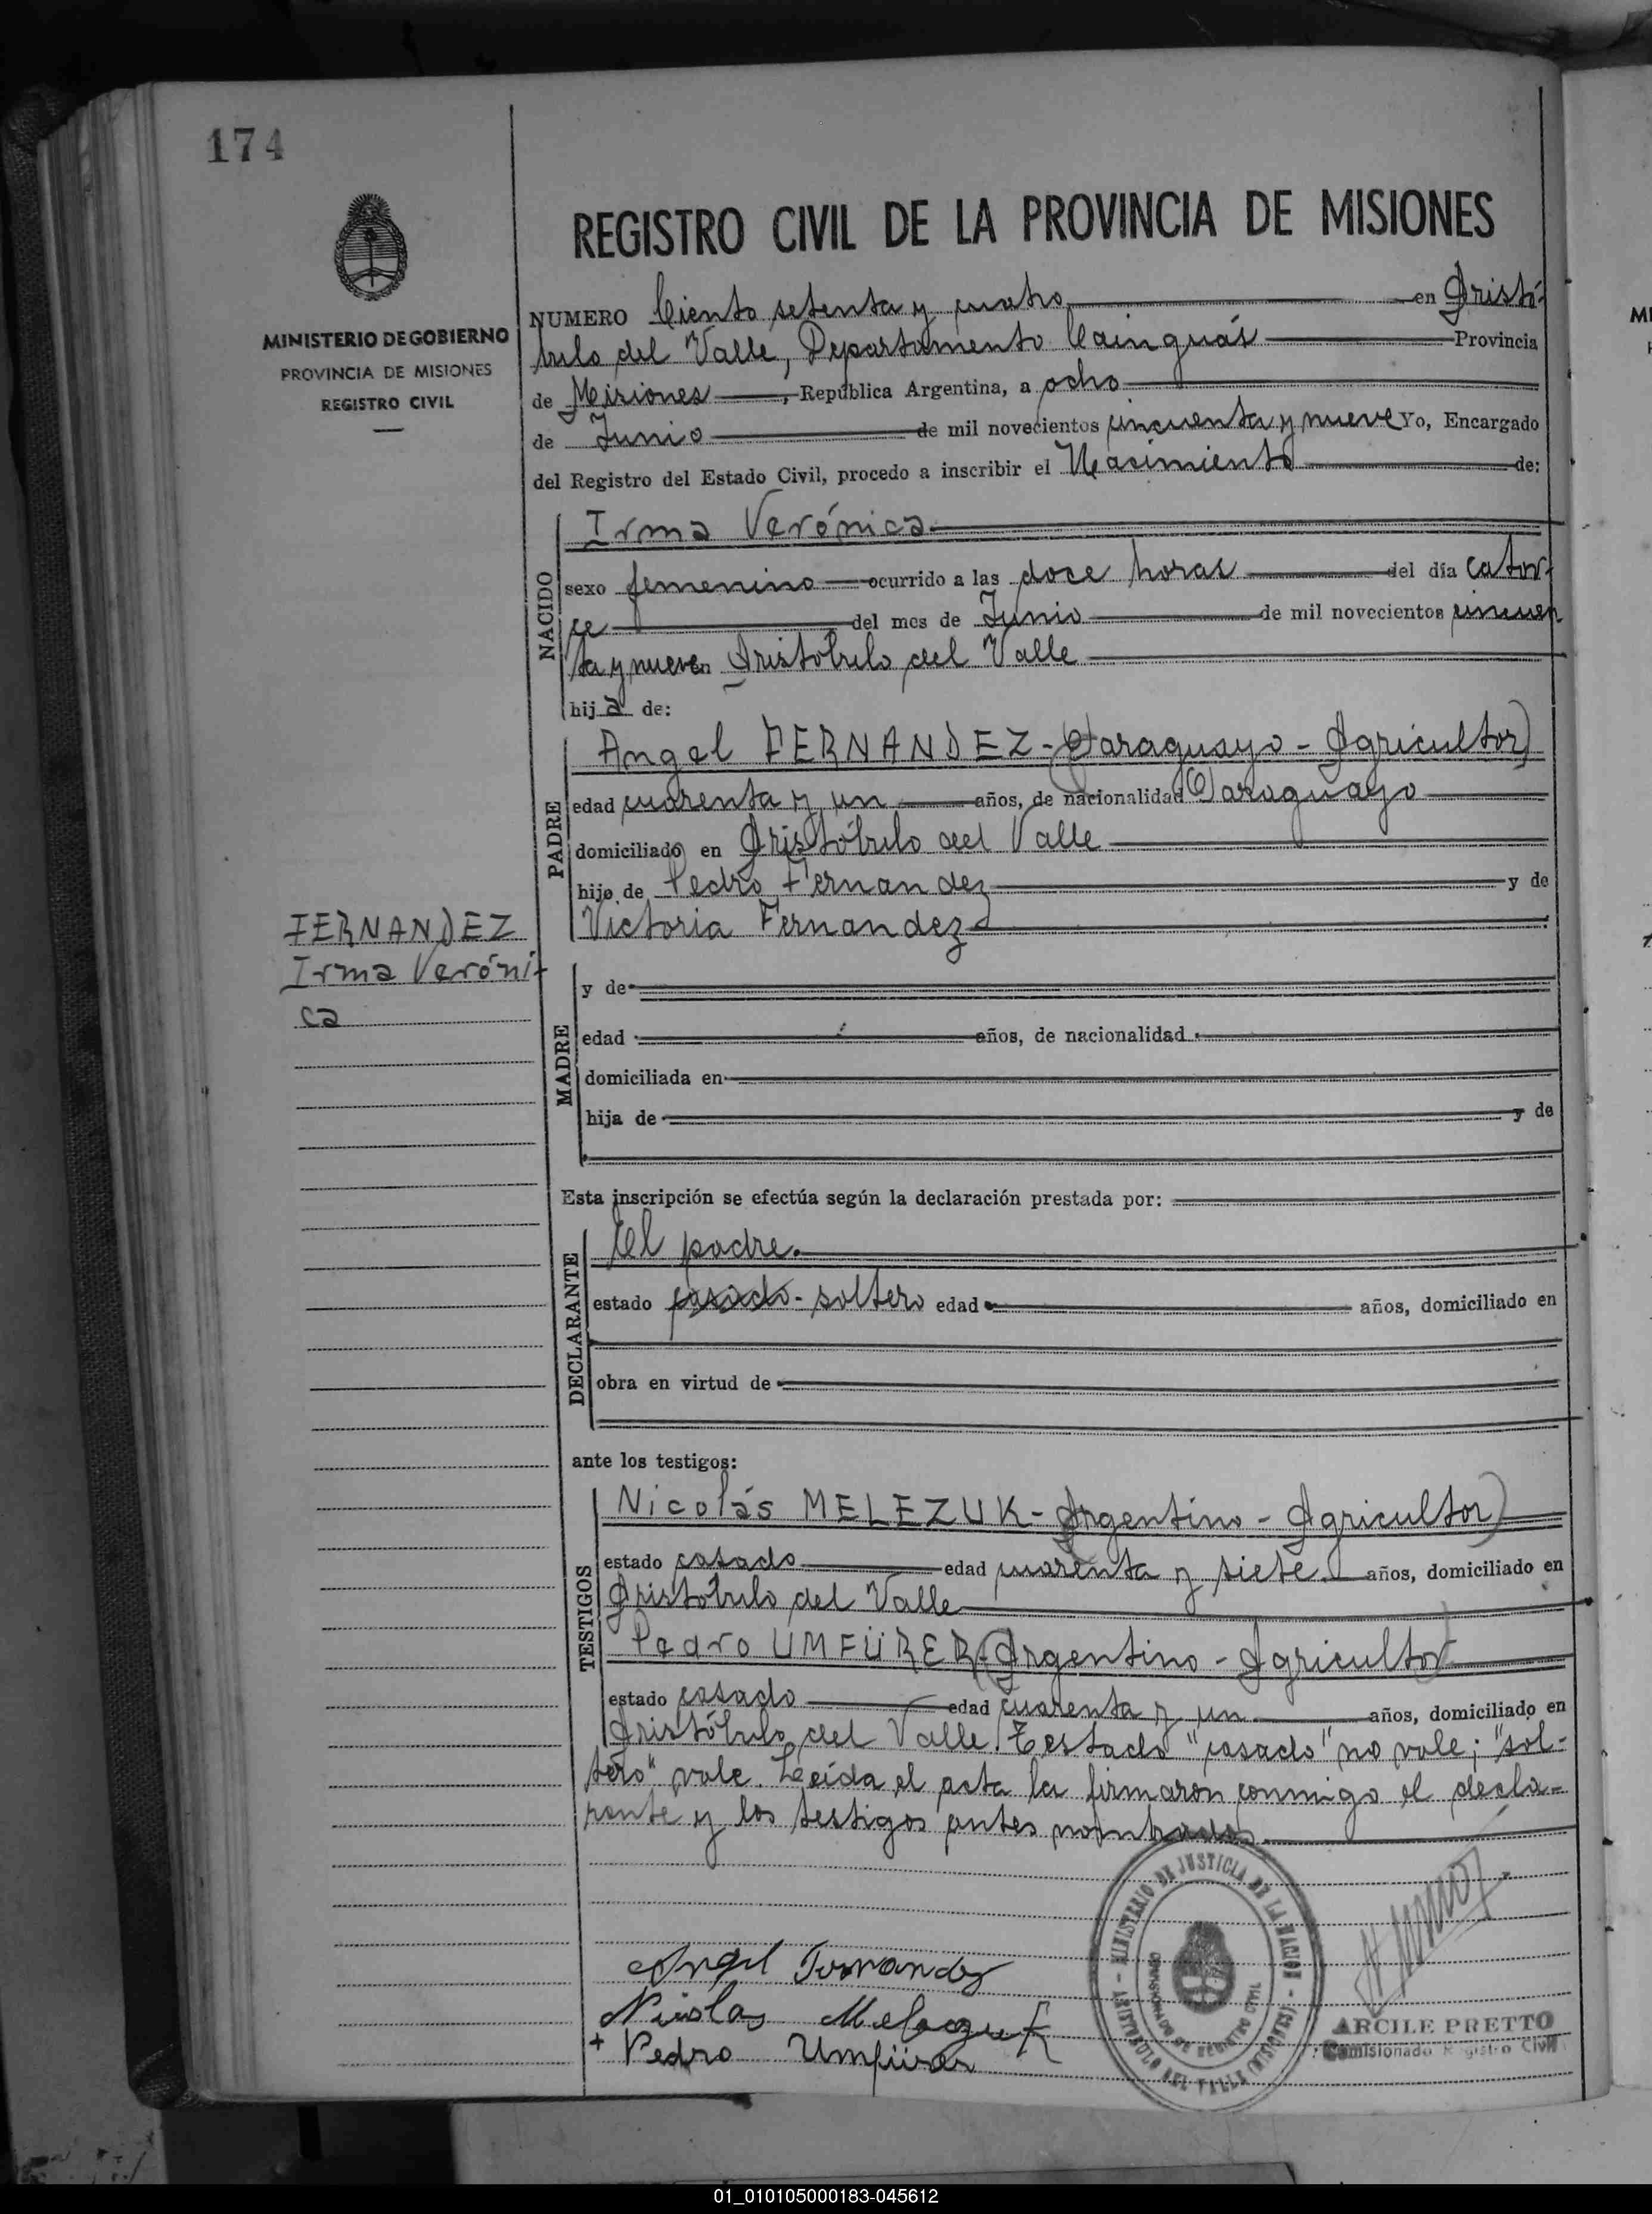 174
MINISTERIO DE GOBIERNO
PROVINCIA DE MISIONES
REGISTRO CIVIL
REGISTRO CIVIL DE LA PROVINCIA DE MISIONES
NUMERO Ciento setenta y cuatro en Aristó-
bulo del Valle, Departamento Cainguás Provincia
de Misiones, República Argentina, a ocho
de Junio de mil novecientos cincuenta y nueve Yo, Encargado
del Registro del Estado Civil, procedo a inscribir el Nacimiento de:
NACIDO
Irma Verónica
sexo femenino ocurrido a las doce horas del día cator-
ce del mes de Junio de mil novecientos cincuen
ta y nueve en Aristóbulo del Valle
hija de:
PADRE
Angel FERNANDEZ-(Paraguayo - Agricultor)
edad cuarenta y un años, de nacionalidad Paraguayo
domiciliado en Aristóbulo del Valle
hijo de Pedro Fernandez y de
Victoria Fernandez
FERNANDEZ
Irma Veróni-
ca
MADRE
y de
edad años, de nacionalidad
domiciliada en
hija de y de
Esta inscripción se efectúa según la declaración prestada por:
DECLARANTE
El padre.
estado casado - soltero edad años, domiciliado en
obra en virtud de
ante los testigos:
TESTIGOS
Nicolás MELEZUK-(Argentino - Agricultor)
estado casado edad cuarenta y siete años, domiciliado en
Aristóbulo del Valle
Pedro UMFÜRER-(Argentino - Agricultor)
estado casado edad cuarenta y un años, domiciliado en
Aristóbulo del Valle. Testado "casado" no vale; "sol-
tero" vale. Leída el acta la firmaron conmigo el decla-
rante y los testigos antes nombrados.
MINISTERIO DE JUSTICIA DE LA NACION - ARISTOBULO DEL VALLE (MISIONES) -
REGISTRO CIVIL
Angel Fernandez
Nicolas Melezuk
+ Pedro Umfürer
ARCILE PRETTO
Comisionado Registro Civil
01_010105000183-045612